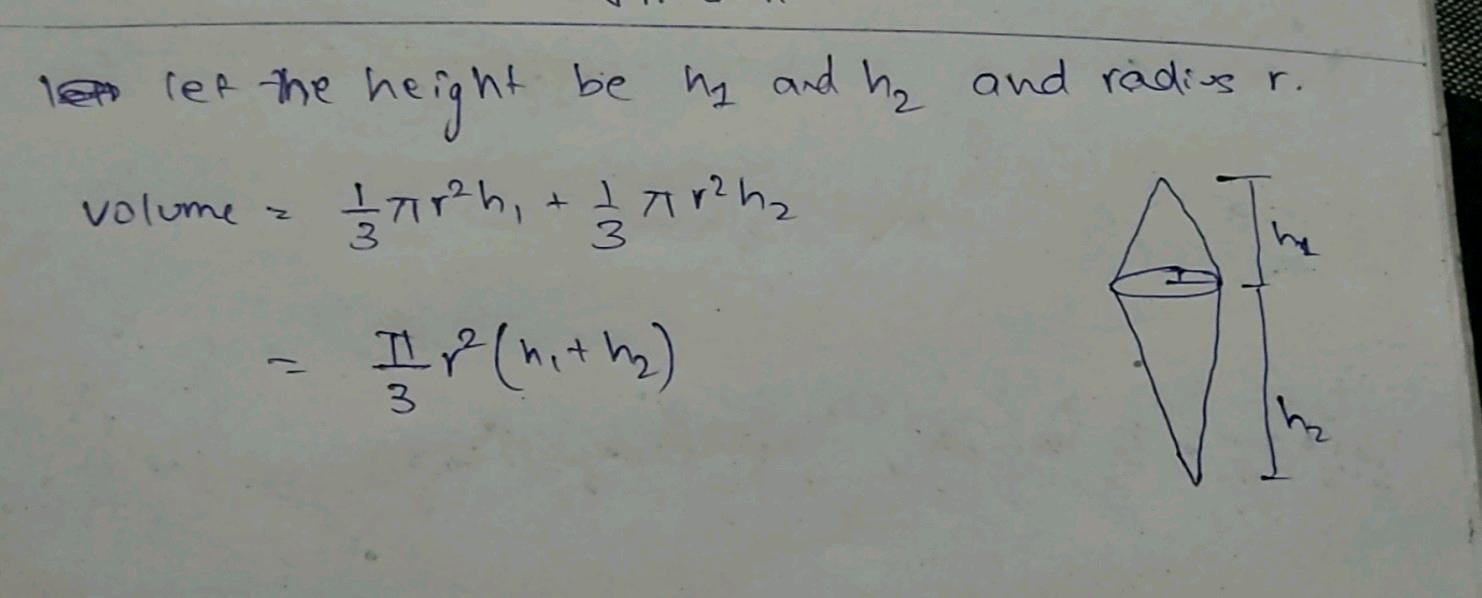 let the height be h₁ and h₂ and radius r.
volume = 1/3 πr²h₁ + 1/3 πr²h₂
= π/3 r²(h₁+h₂)
h₁
h₂